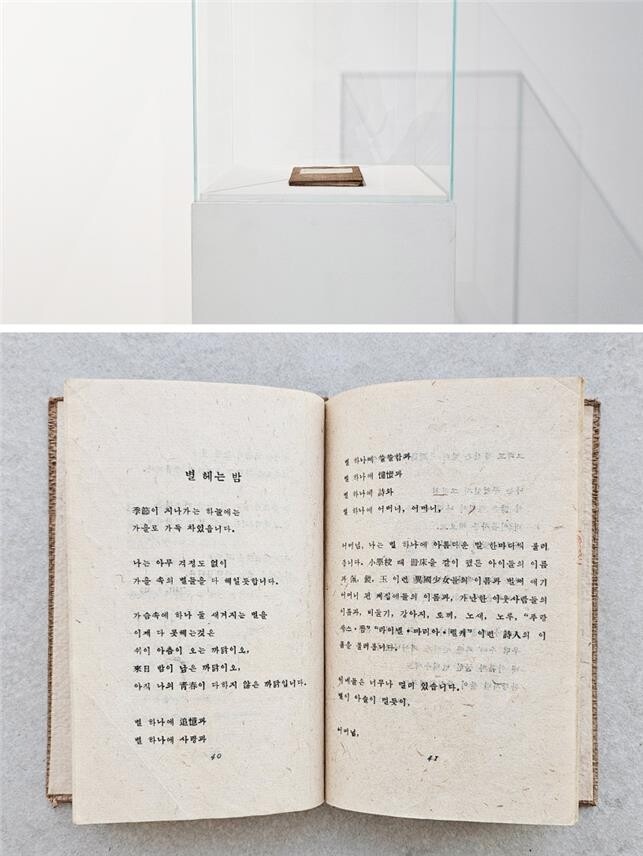 별 헤는 밤
季節이 지나가는 하늘에는
가을로 가득 차있습니다.
나는 아무 걱정도 없이
가을 속의 별들을 다 헤일듯합니다.
가슴속에 하나 둘 새겨지는 별을
이제 다 못헤는것은
쉬이 아츰이 오는 까닭이오,
來日 밤이 남은 까닭이오,
아직 나의 靑春이 다하지 않은 까닭입니다.
별 하나에 追憶과
별 하나에 사랑과
40
별 하나에 쓸쓸함과
별 하나에 憧憬과
별 하나에 詩와
별 하나에 어머니, 어머니,
어머님, 나는 별 하나에 아름다운 말 한마디식 불러
봅니다. 小學校 때 冊床을 같이 했든 아이들의 이름
과 佩, 鏡, 玉 이런 異國少女들의 이름과 벌써 애기
어머니 된 계집애들의 이름과, 가난한 이웃사람들의
이름과, 비둘기, 강아지, 토끼, 노새, 노루,
이런 詩人의 이
름을 불러봅니다.
이네들은 너무나 멀리 있습니다.
별이 아슬이 멀듯이,
어머님,
41